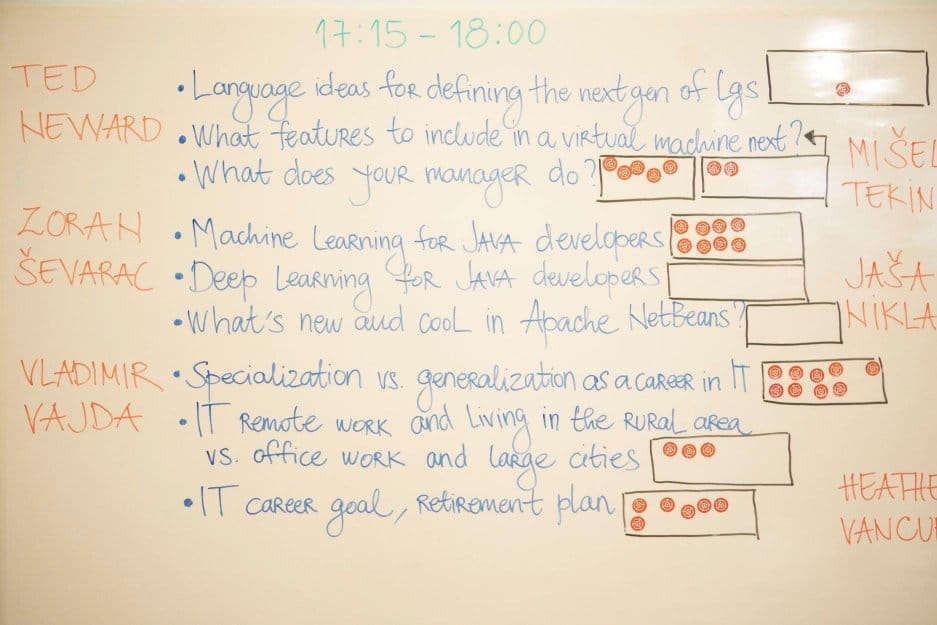 17:15 - 18:00
TED
NEWARD
• Language ideas for defining the next gen of lgs
• What features to include in a virtual machine next?
• What does your manager do?
MIŠEL
TEKIN
ZORAN
ŠEVARAC
• Machine Learning for JAVA developers
• Deep Learning for JAVA developers
• What's new and cool in Apache NetBeans?
JAŠA
NIKLA
VLADIMIR
VAJDA
• Specialization vs. generalization as a career in IT
• IT Remote work and living in the rural area
vs. office work and large cities
• IT career goal, retirement plan
HEATHE
VANCU